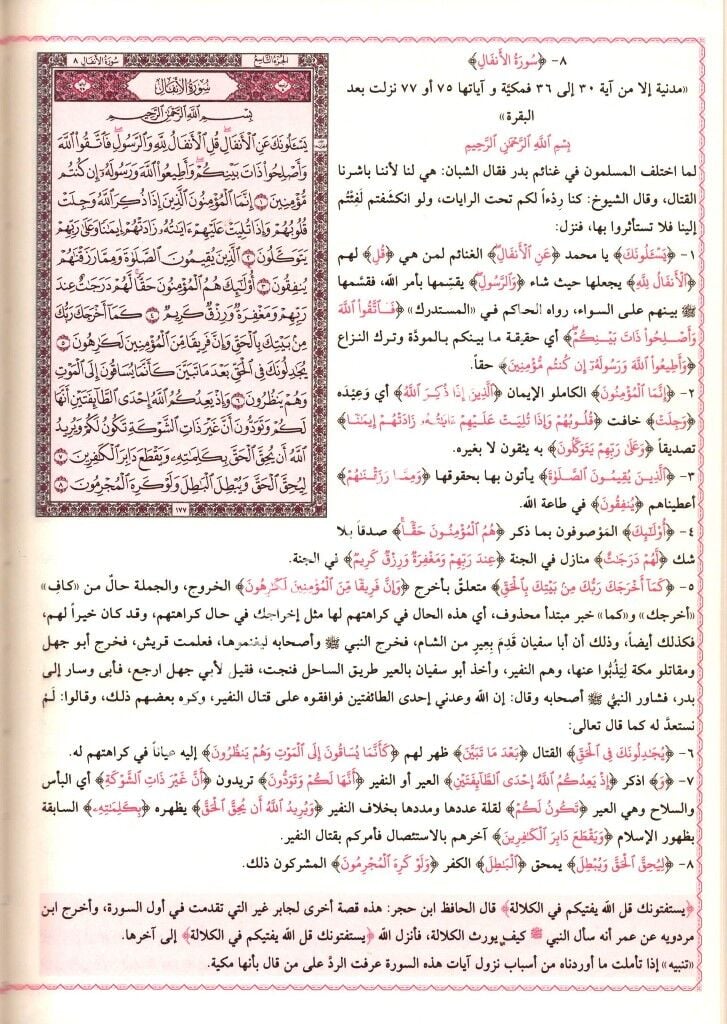 سُورَةُ الأَنفَال ٨
الجُزءُ التَّاسِعُ
سُورَةُ الأَنفَالِ
بِسْمِ اللَّهِ الرَّحْمَٰنِ الرَّحِيمِ
يَسْـَٔلُونَكَ عَنِ ٱلْأَنفَالِ قُلِ ٱلْأَنفَالُ لِلَّهِ وَٱلرَّسُولِ فَٱتَّقُوا۟ ٱللَّهَ
وَأَصْلِحُوا۟ ذَاتَ بَيْنِكُمْ وَأَطِيعُوا۟ ٱللَّهَ وَرَسُولَهُۥٓ إِن كُنتُم
مُّؤْمِنِينَ ١ إِنَّمَا ٱلْمُؤْمِنُونَ ٱلَّذِينَ إِذَا ذُكِرَ ٱللَّهُ وَجِلَتْ
قُلُوبُهُمْ وَإِذَا تُلِيَتْ عَلَيْهِمْ ءَايَٰتُهُۥ زَادَتْهُمْ إِيمَٰنًا وَعَلَىٰ رَبِّهِمْ
يَتَوَكَّلُونَ ٢ ٱلَّذِينَ يُقِيمُونَ ٱلصَّلَوٰةَ وَمِمَّا رَزَقْنَٰهُمْ
يُنفِقُونَ ٣ أُو۟لَٰٓئِكَ هُمُ ٱلْمُؤْمِنُونَ حَقًّا لَّهُمْ دَرَجَٰتٌ عِندَ
رَبِّهِمْ وَمَغْفِرَةٌ وَرِزْقٌ كَرِيمٌ ٤ كَمَآ أَخْرَجَكَ رَبُّكَ
مِنۢ بَيْتِكَ بِٱلْحَقِّ وَإِنَّ فَرِيقًا مِّنَ ٱلْمُؤْمِنِينَ لَكَٰرِهُونَ ٥
يُجَٰدِلُونَكَ فِى ٱلْحَقِّ بَعْدَ مَا تَبَيَّنَ كَأَنَّمَا يُسَاقُونَ إِلَى ٱلْمَوْتِ
وَهُمْ يَنظُرُونَ ٦ وَإِذْ يَعِدُكُمُ ٱللَّهُ إِحْدَى ٱلطَّآئِفَتَيْنِ أَنَّهَا
لَكُمْ وَتَوَدُّونَ أَنَّ غَيْرَ ذَاتِ ٱلشَّوْكَةِ تَكُونُ لَكُمْ وَيُرِيدُ
ٱللَّهُ أَن يُحِقَّ ٱلْحَقَّ بِكَلِمَٰتِهِۦ وَيَقْطَعَ دَابِرَ ٱلْكَٰفِرِينَ ٧
لِيُحِقَّ ٱلْحَقَّ وَيُبْطِلَ ٱلْبَٰطِلَ وَلَوْ كَرِهَ ٱلْمُجْرِمُونَ ٨
١٧٧
٨- ﴿سُورَةُ الأَنفَالِ﴾
«مدنية إلا من آية ٣٠ إلى ٣٦ فمكيّة و آياتها ٧٥ أو ٧٧ نزلت بعد
البقرة»
بِسْمِ اللَّهِ الرَّحْمَٰنِ الرَّحِيمِ
لما اختلف المسلمون في غنائم بدر فقال الشبان: هي لنا لأننا باشرنا
القتال، وقال الشيوخ: كنا رِدْءاً لكم تحت الرايات، ولو انكشفتم لَفِئْتُم
إلينا فلا تستأثروا بها، فنزل:
١- ﴿يَسْـَٔلُونَكَ﴾ يا محمد ﴿عَنِ ٱلْأَنفَالِ﴾ الغنائم لمن هي ﴿قُلِ﴾ لهم
﴿ٱلْأَنفَالُ لِلَّهِ﴾ يجعلها حيث شاء ﴿وَٱلرَّسُولِ﴾ يقسِّمها بأمر الله، فقسَّمها
ﷺ بينهم على السواء، رواه الحاكم في «المستدرك» ﴿فَٱتَّقُوا۟ ٱللَّهَ
وَأَصْلِحُوا۟ ذَاتَ بَيْنِكُمْ﴾ أي حقيقة ما بينكم بالمودّة وترك النزاع
﴿وَأَطِيعُوا۟ ٱللَّهَ وَرَسُولَهُۥٓ إِن كُنتُم مُّؤْمِنِينَ﴾ حقاً.
٢- ﴿إِنَّمَا ٱلْمُؤْمِنُونَ﴾ الكاملو الإيمان ﴿ٱلَّذِينَ إِذَا ذُكِرَ ٱللَّهُ﴾ أي وَعِيْده
﴿وَجِلَتْ﴾ خافت ﴿قُلُوبُهُمْ وَإِذَا تُلِيَتْ عَلَيْهِمْ ءَايَٰتُهُۥ زَادَتْهُمْ إِيمَٰنًا﴾
تصديقاً ﴿وَعَلَىٰ رَبِّهِمْ يَتَوَكَّلُونَ﴾ به يثقون لا بغيره.
٣- ﴿ٱلَّذِينَ يُقِيمُونَ ٱلصَّلَوٰةَ﴾ يأتون بها بحقوقها ﴿وَمِمَّا رَزَقْنَٰهُمْ﴾
أعطيناهم ﴿يُنفِقُونَ﴾ في طاعة الله.
٤- ﴿أُو۟لَٰٓئِكَ﴾ المَوْصوفون بما ذكر ﴿هُمُ ٱلْمُؤْمِنُونَ حَقًّا﴾ صدقاً بلا
شك ﴿لَّهُمْ دَرَجَٰتٌ﴾ منازل في الجنة ﴿عِندَ رَبِّهِمْ وَمَغْفِرَةٌ وَرِزْقٌ كَرِيمٌ﴾ في الجنة.
٥- ﴿كَمَآ أَخْرَجَكَ رَبُّكَ مِنۢ بَيْتِكَ بِٱلْحَقِّ﴾ متعلّق بأخرج ﴿وَإِنَّ فَرِيقًا مِّنَ ٱلْمُؤْمِنِينَ لَكَٰرِهُونَ﴾ الخروج، والجملة حالٌ من «كافِ»
«أخرجك» و«كما» خبر مبتدأ محذوف، أي هذه الحال في كراهتهم لها مثل إخراجك في حال كراهتهم، وقد كان خيراً لهم،
فكذلك أيضاً، وذلك أن أبا سفيان قَدِمَ بِعِيرٍ من الشام، فخرج النبي ﷺ وأصحابه ليغنموها، فعلمت قريش، فخرج أبو جهل
ومقاتلو مكة لِيَذُبُّوا عنها، وهم النفير، وأخذ أبو سفيان بالعير طريق الساحل فنجت، فقيل لأبي جهل ارجع، فأبى وسار إلى
بدر، فشاور النبيُّ ﷺ أصحابه وقال: إن الله وعدني إحدى الطائفتين فوافقوه على قتال النفير، وكره بعضهم ذلك، وقالوا: لَمْ
نستعدَّ له كما قال تعالى:
٦- ﴿يُجَٰدِلُونَكَ فِى ٱلْحَقِّ﴾ القتال ﴿بَعْدَ مَا تَبَيَّنَ﴾ ظهر لهم ﴿كَأَنَّمَا يُسَاقُونَ إِلَى ٱلْمَوْتِ وَهُمْ يَنظُرُونَ﴾ إليه عياناً في كراهتهم له.
٧- ﴿وَ﴾ اذكر ﴿إِذْ يَعِدُكُمُ ٱللَّهُ إِحْدَى ٱلطَّآئِفَتَيْنِ﴾ العير أو النفير ﴿أَنَّهَا لَكُمْ وَتَوَدُّونَ﴾ تريدون ﴿أَنَّ غَيْرَ ذَاتِ ٱلشَّوْكَةِ﴾ أي البأس
والسلاح وهي العير ﴿تَكُونُ لَكُمْ﴾ لقلة عددها ومددها بخلاف النفير ﴿وَيُرِيدُ ٱللَّهُ أَن يُحِقَّ ٱلْحَقَّ﴾ يظهره ﴿بِكَلِمَٰتِهِۦ﴾ السابقة
بظهور الإسلام ﴿وَيَقْطَعَ دَابِرَ ٱلْكَٰفِرِينَ﴾ آخرهم بالاستئصال فأمركم بقتال النفير.
٨- ﴿لِيُحِقَّ ٱلْحَقَّ وَيُبْطِلَ﴾ يمحق ﴿ٱلْبَٰطِلَ﴾ الكفر ﴿وَلَوْ كَرِهَ ٱلْمُجْرِمُونَ﴾ المشركون ذلك.
﴿يستفتونك قل الله يفتيكم في الكلالة﴾ قال الحافظ ابن حجر: هذه قصة أخرى لجابر غير التي تقدمت في أول السورة، وأخرج ابن
مردويه عن عمر أنه سأل النبي ﷺ كيف يورث الكلالة، فأنزل الله ﴿يستفتونك قل الله يفتيكم في الكلالة﴾ إلى آخرها.
«تنبيه» إذا تأملت ما أوردناه من أسباب نزول آيات هذه السورة عرفت الردَّ على من قال بأنها مكية.